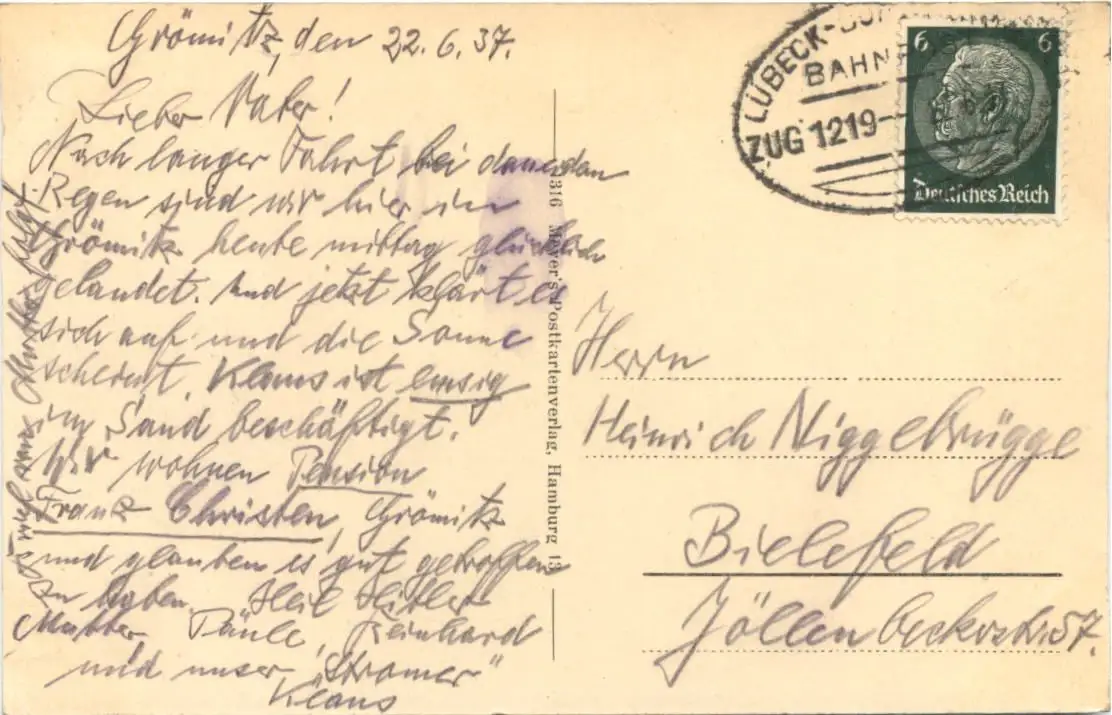 Grömitz, den 22.6.37.
Lieber Vater!
Nach langer Fahrt bei dauerdan
Regen sind wir hier in
Grömitz heute mittag glücklich
gelandet. Und jetzt klärt es
sich auf und die Sonne
scheint. Klaus ist emsig
im Sand beschäftigt.
Wir wohnen Pension
Franz Christen, Grömitz
und glauben es gut getroffen
zu haben. Heil Hitler
Mutter, Paule, Reinhard
und unser "Stromer"
Klaus
1316 Meyer's Postkartenverlag, Hamburg 13
LÜBECK-
BAHNPOST
ZUG 1219
6 6
Deutsches Reich
Herrn
Heinrich Niggebrügge
Bielefeld
Jöllenbeckerstr. 57.